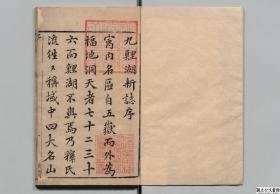 九鯉湖新誌序
寓內名區自五嶽而外為
福地洞天者七十二三十
六而鯉湖不與焉乃釋氏
流經又稱域中四大名山